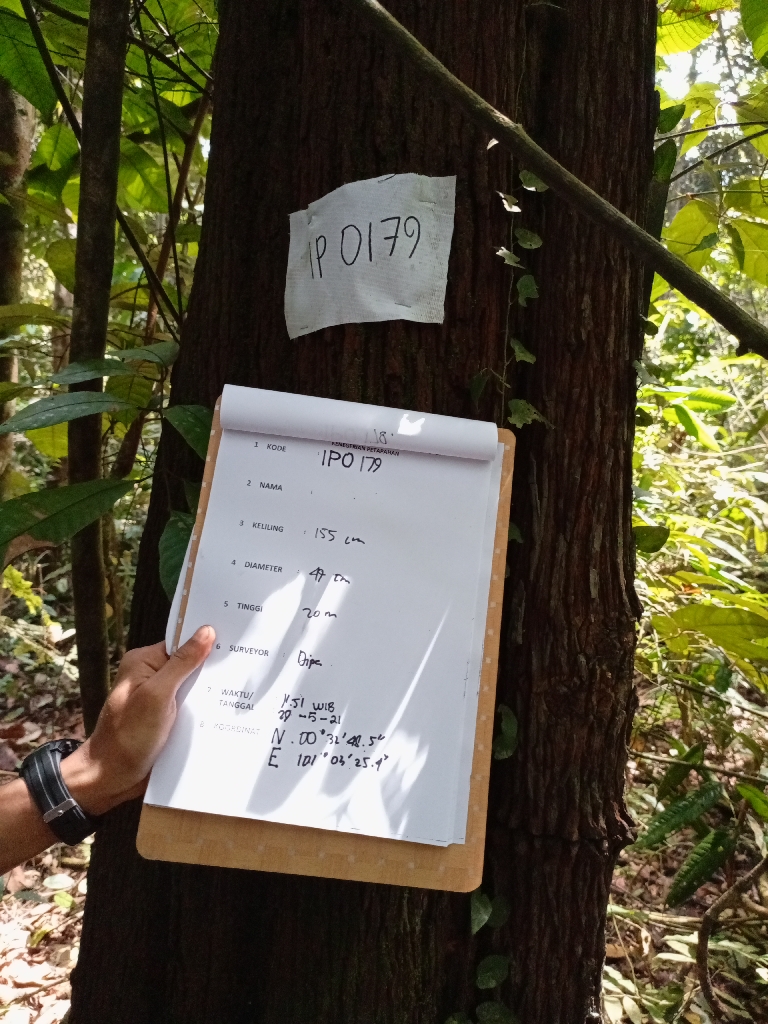 IP 0179
KENEGRIAN PETAPAHAN
1 KODE : IPO 179
2 NAMA :
3 KELILING : 155 cm
4 DIAMETER : 49 cm
5 TINGGI : 20 m
6 SURVEYOR : Dipa
7 WAKTU/ TANGGAL
11.51 WIB
29-5-21
8 KOORDINAT
N . 00° 32' 48.5"
E 101° 03' 25.4"